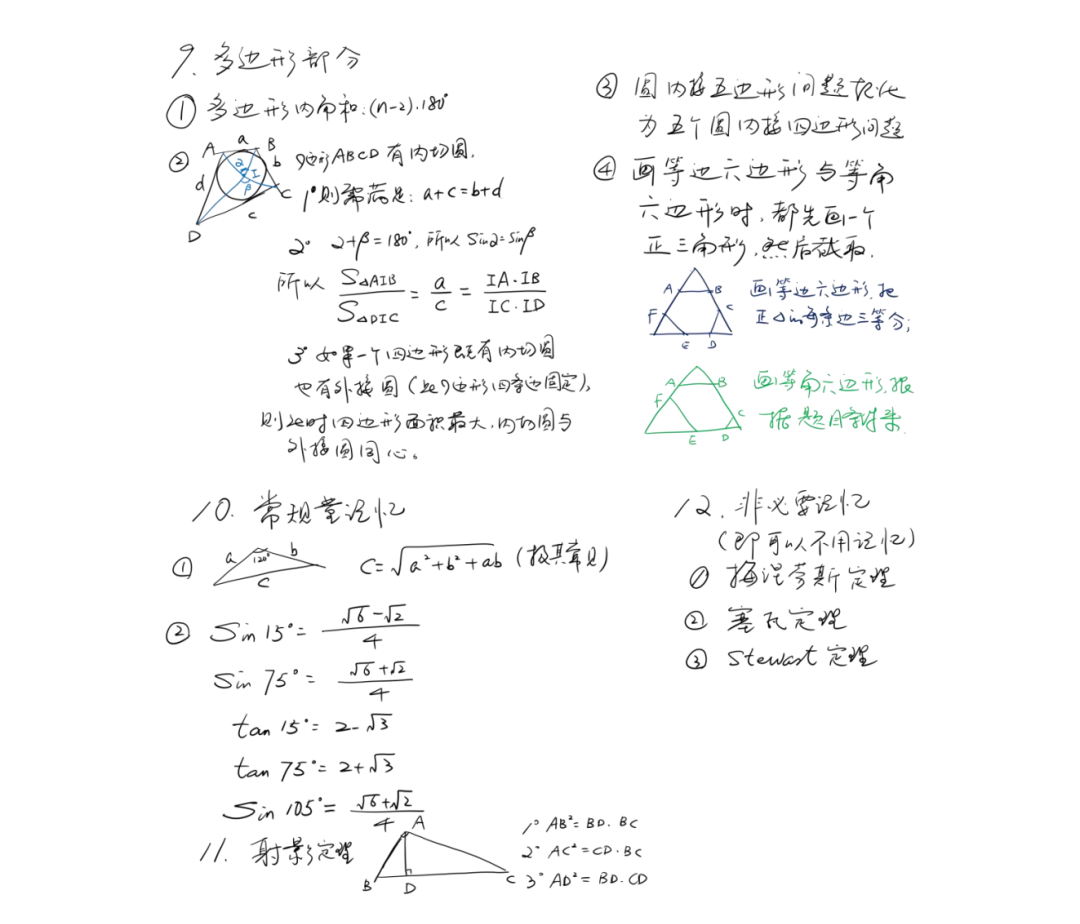 9. 多边形部分
① 多边形内角和:(n-2)·180°
② 四边形ABCD有内切圆.
A a B
b
d
α I
β
C
c
D
1° 则需满足: a+c=b+d
2° α+β=180°, 所以 Sinα=Sinβ
所以 S△AIB/S△DIC = a/c = IA·IB/IC·ID
3° 如果一个四边形既有内切圆
也有外接圆 (此四边形四条边固定),
则此时四边形面积最大, 内切圆与
外接圆同心。
③ 圆内接五边形问题转化
为五个圆内接四边形问题
④ 画等边六边形与等角
六边形时, 都先画一个
正三角形, 然后截取.
A B
F C
E D
画等边六边形, 把
正△的每条边三等分;
A B
F C
E D
画等角六边形, 根
据题目条件来.
10. 常规量记忆
① a 120° b
c
C=√a²+b²+ab (极其常见)
② Sin 15°= √6-√2/4
Sin 75°= √6+√2/4
tan 15°= 2-√3
tan 75°= 2+√3
Sin 105°= √6+√2/4
11. 射影定理
A
B D C
1° AB²=BD·BC
2° AC²=CD·BC
3° AD²=BD·CD
12. 非必要记忆
(即可以不用记忆)
① 梅涅劳斯定理
② 塞瓦定理
③ Stewart定理